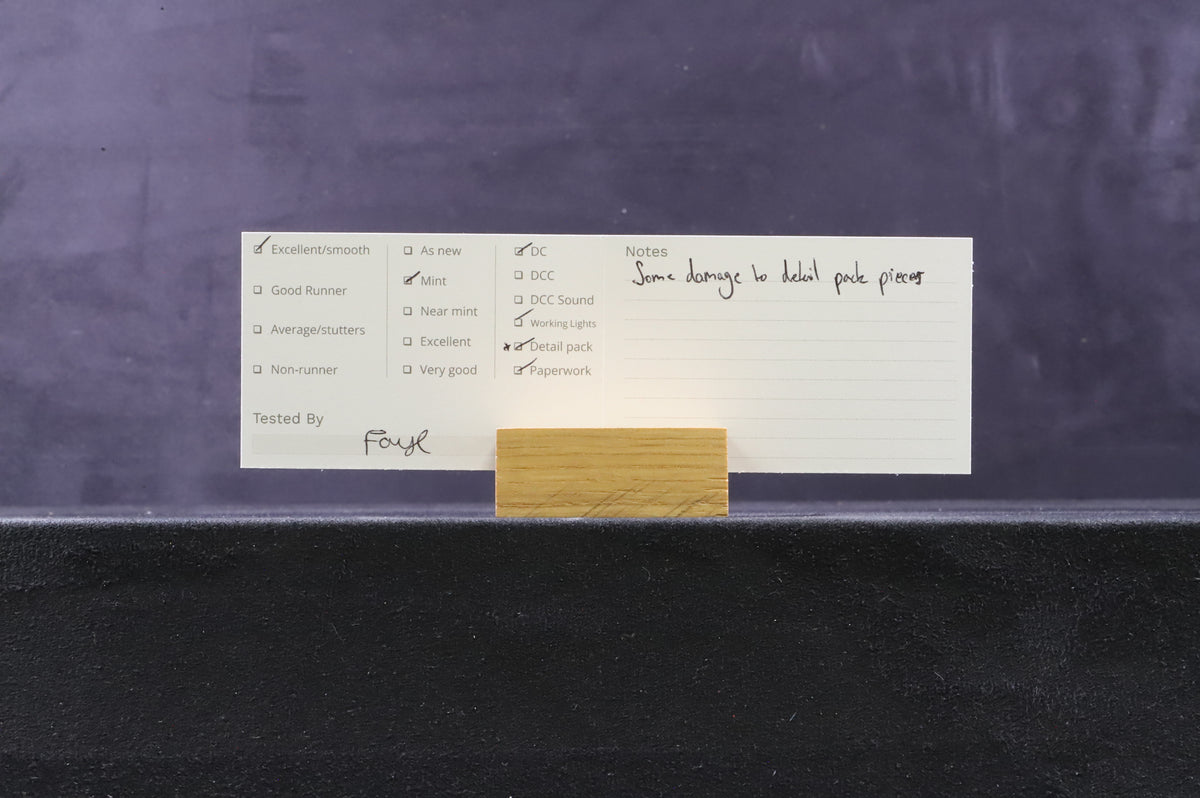 Excellent/smooth
Good Runner
Average/stutters
Non-runner
As new
Mint
Near mint
Excellent
Very good
DC
DCC
DCC Sound
Working Lights
* Detail pack
Paperwork
Tested By
Notes
Some damage to detail pack pieces